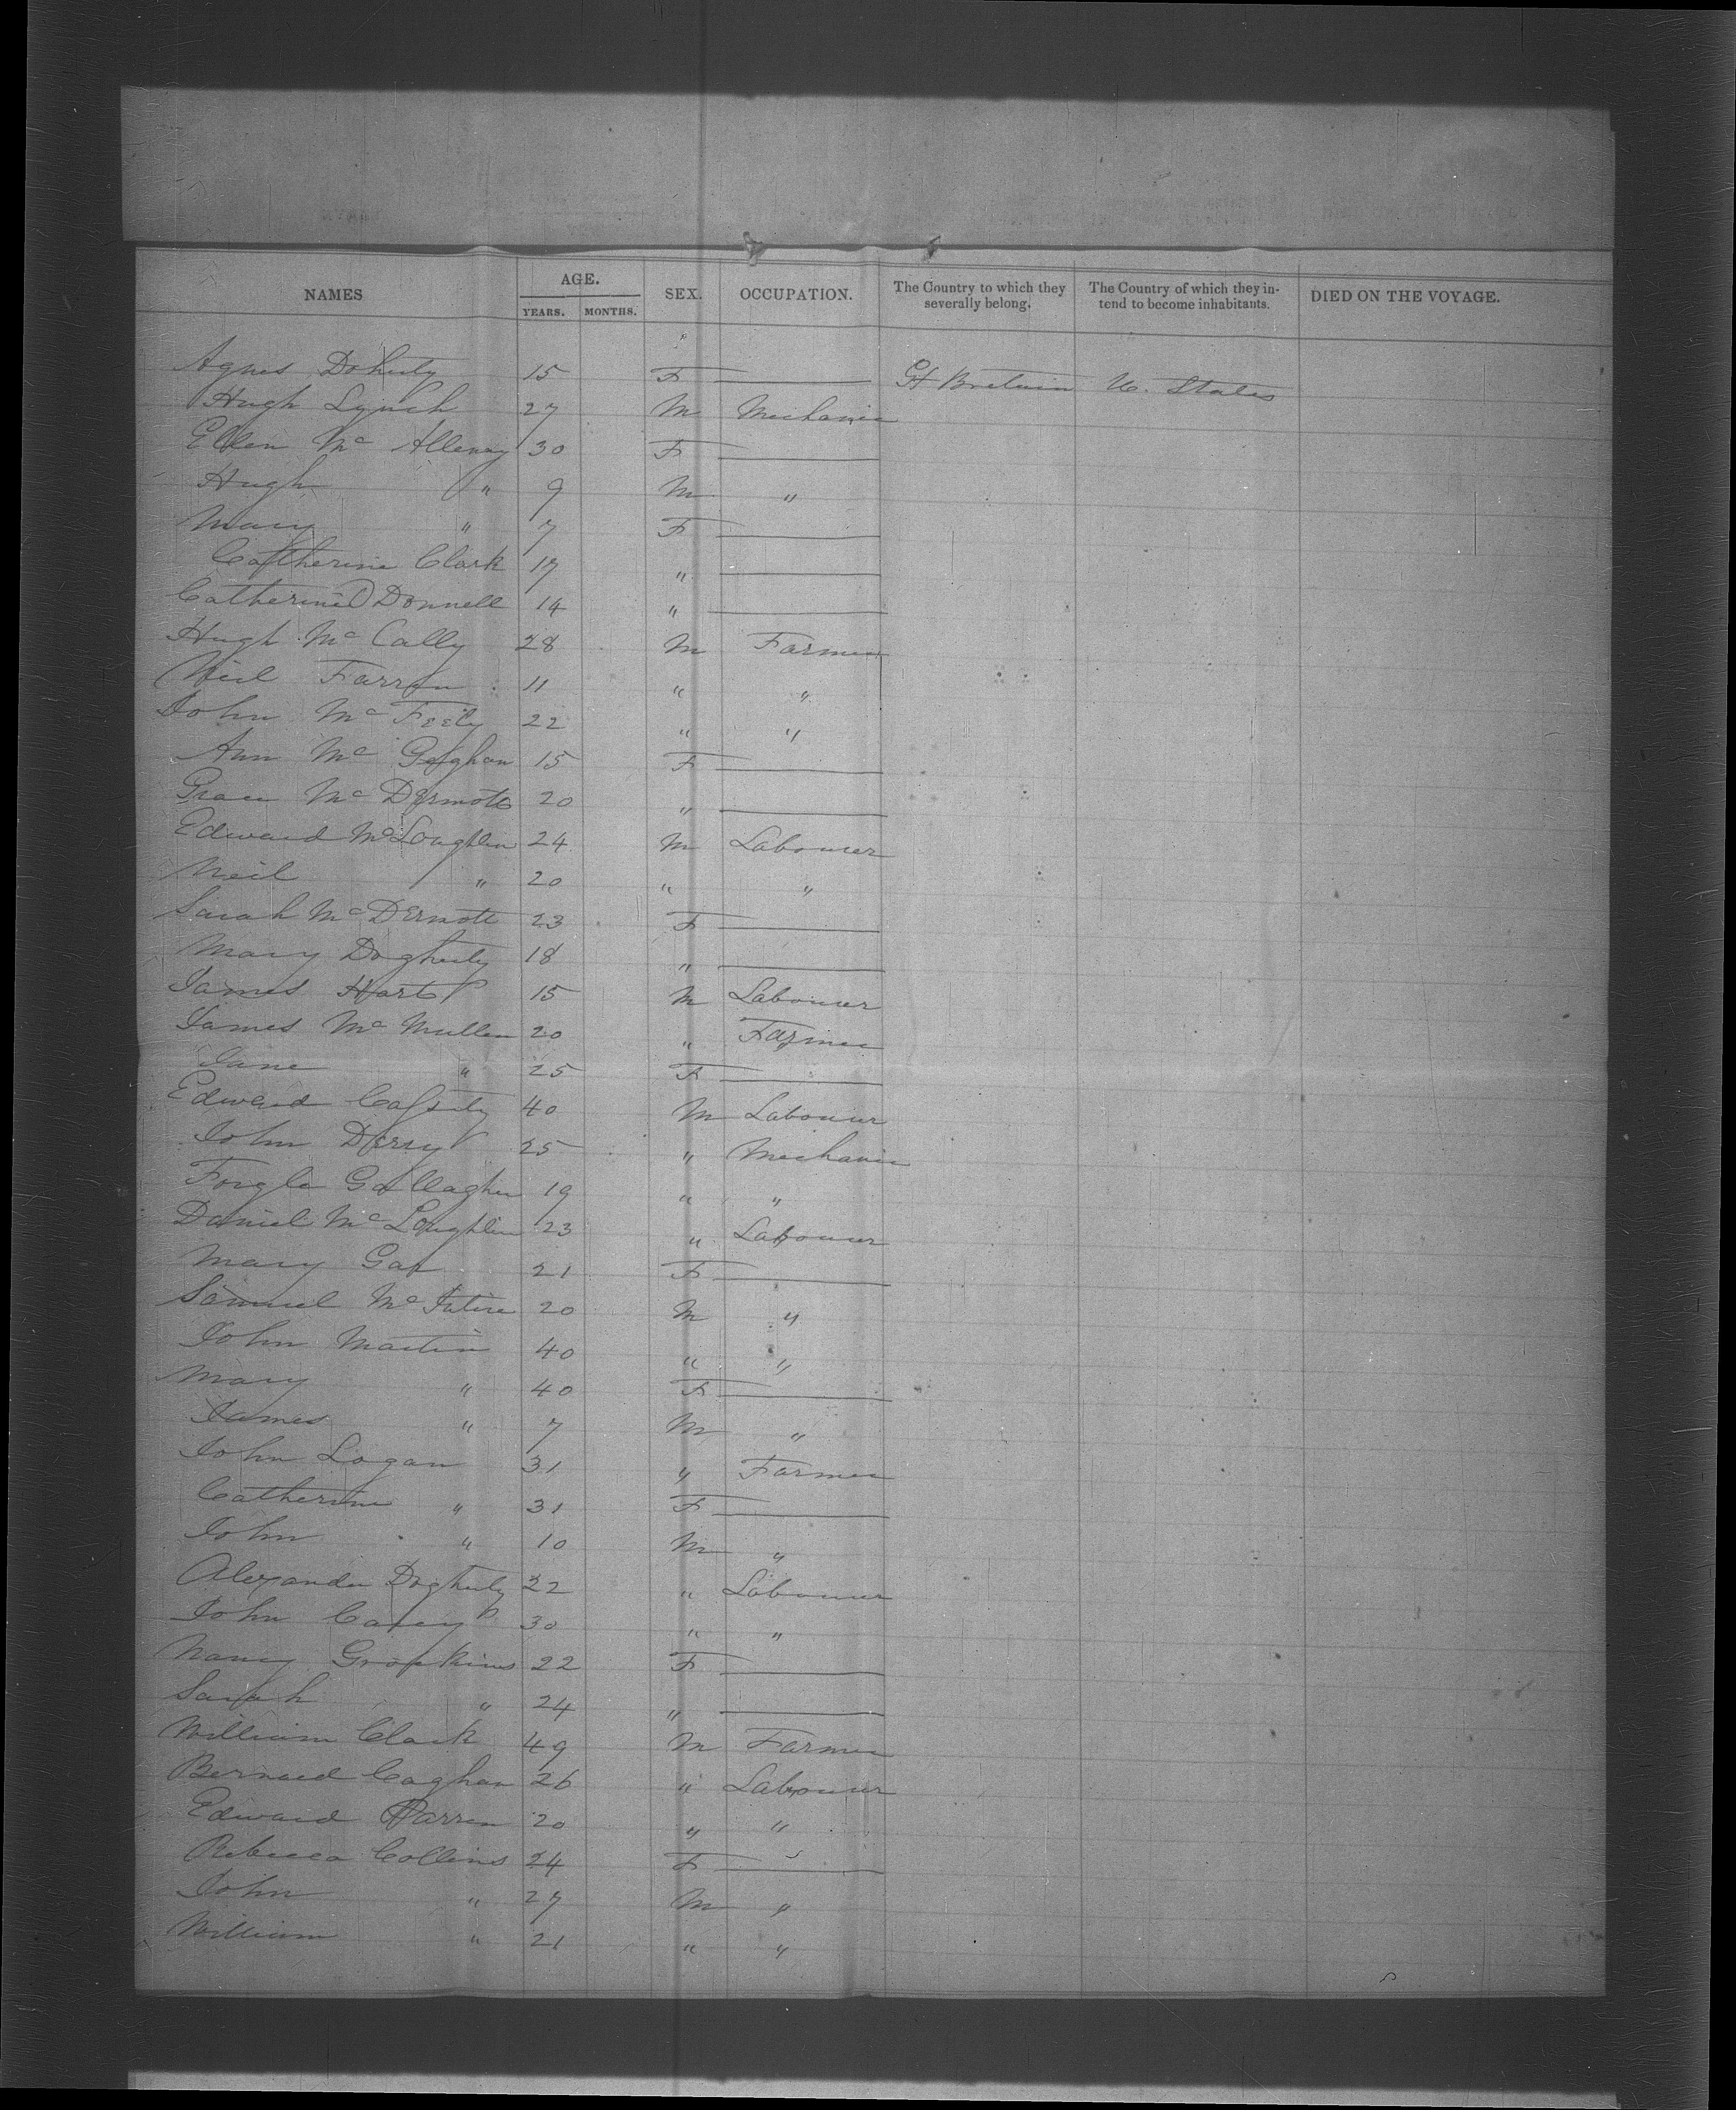 NAMES AGE. SEX. OCCUPATION. The Country to which they severally belong. The Country of which they intend to become inhabitants. DIED ON THE VOYAGE.
YEARS. MONTHS.
Agnes Doherty 15 F — Gt Bretain U. States
Hugh Lynch 27 M Mechanic
Ellen Mc Allenay 30 F —
Hugh " 9 M "
Mary " 7 F —
Catherine Clark 17 " —
Catherine Donnell 14 " —
Hugh Mc Cally 28 M Farmer
Neil Farren 11 " "
John Mc Feely 22 " "
Ann Mc Geghan 15 F —
Grace Mc Dermott 20 " —
Edward Mc Loughlin 24 M Labourer
Neil " 20 " "
Sarah Mc Dermott 23 F —
Mary Dogherty 18 " —
James Hart 15 M Labourer
James Mc Mullen 20 " Farmer
Jane " 25 F —
Edward Cassidy 40 M Labourer
John Derry 25 " Mechanic
Gallagher 19 " "
Daniel Mc Loughlin 23 " Labourer
Mary 21 F —
Samuel Mc Intire 20 M "
John Martin 40 " "
Mary " 40 F —
James " 7 M "
John Logan 31 " Farmer
Catherine " 31 F —
John " 10 M "
Alexander Dogherty 22 " Labourer
John Carey 30 " "
Nancy 22 F —
Sarah " 24 " —
William Clark 49 M Farmer
Bernard Caghan 26 " Labourer
Edward Farren 20 " "
Rebecca Collins 24 F —
John " 27 M "
William " 21 " "